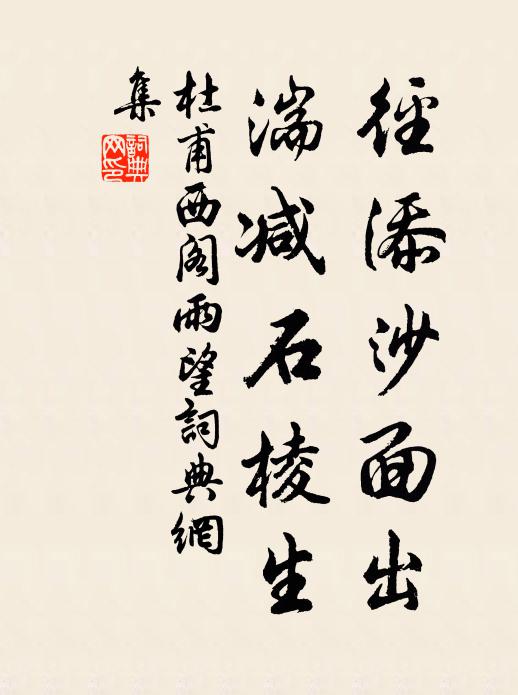 徑添沙面出
湍減石棱生
杜甫西閣雨望詞典網
集
詞典
网印